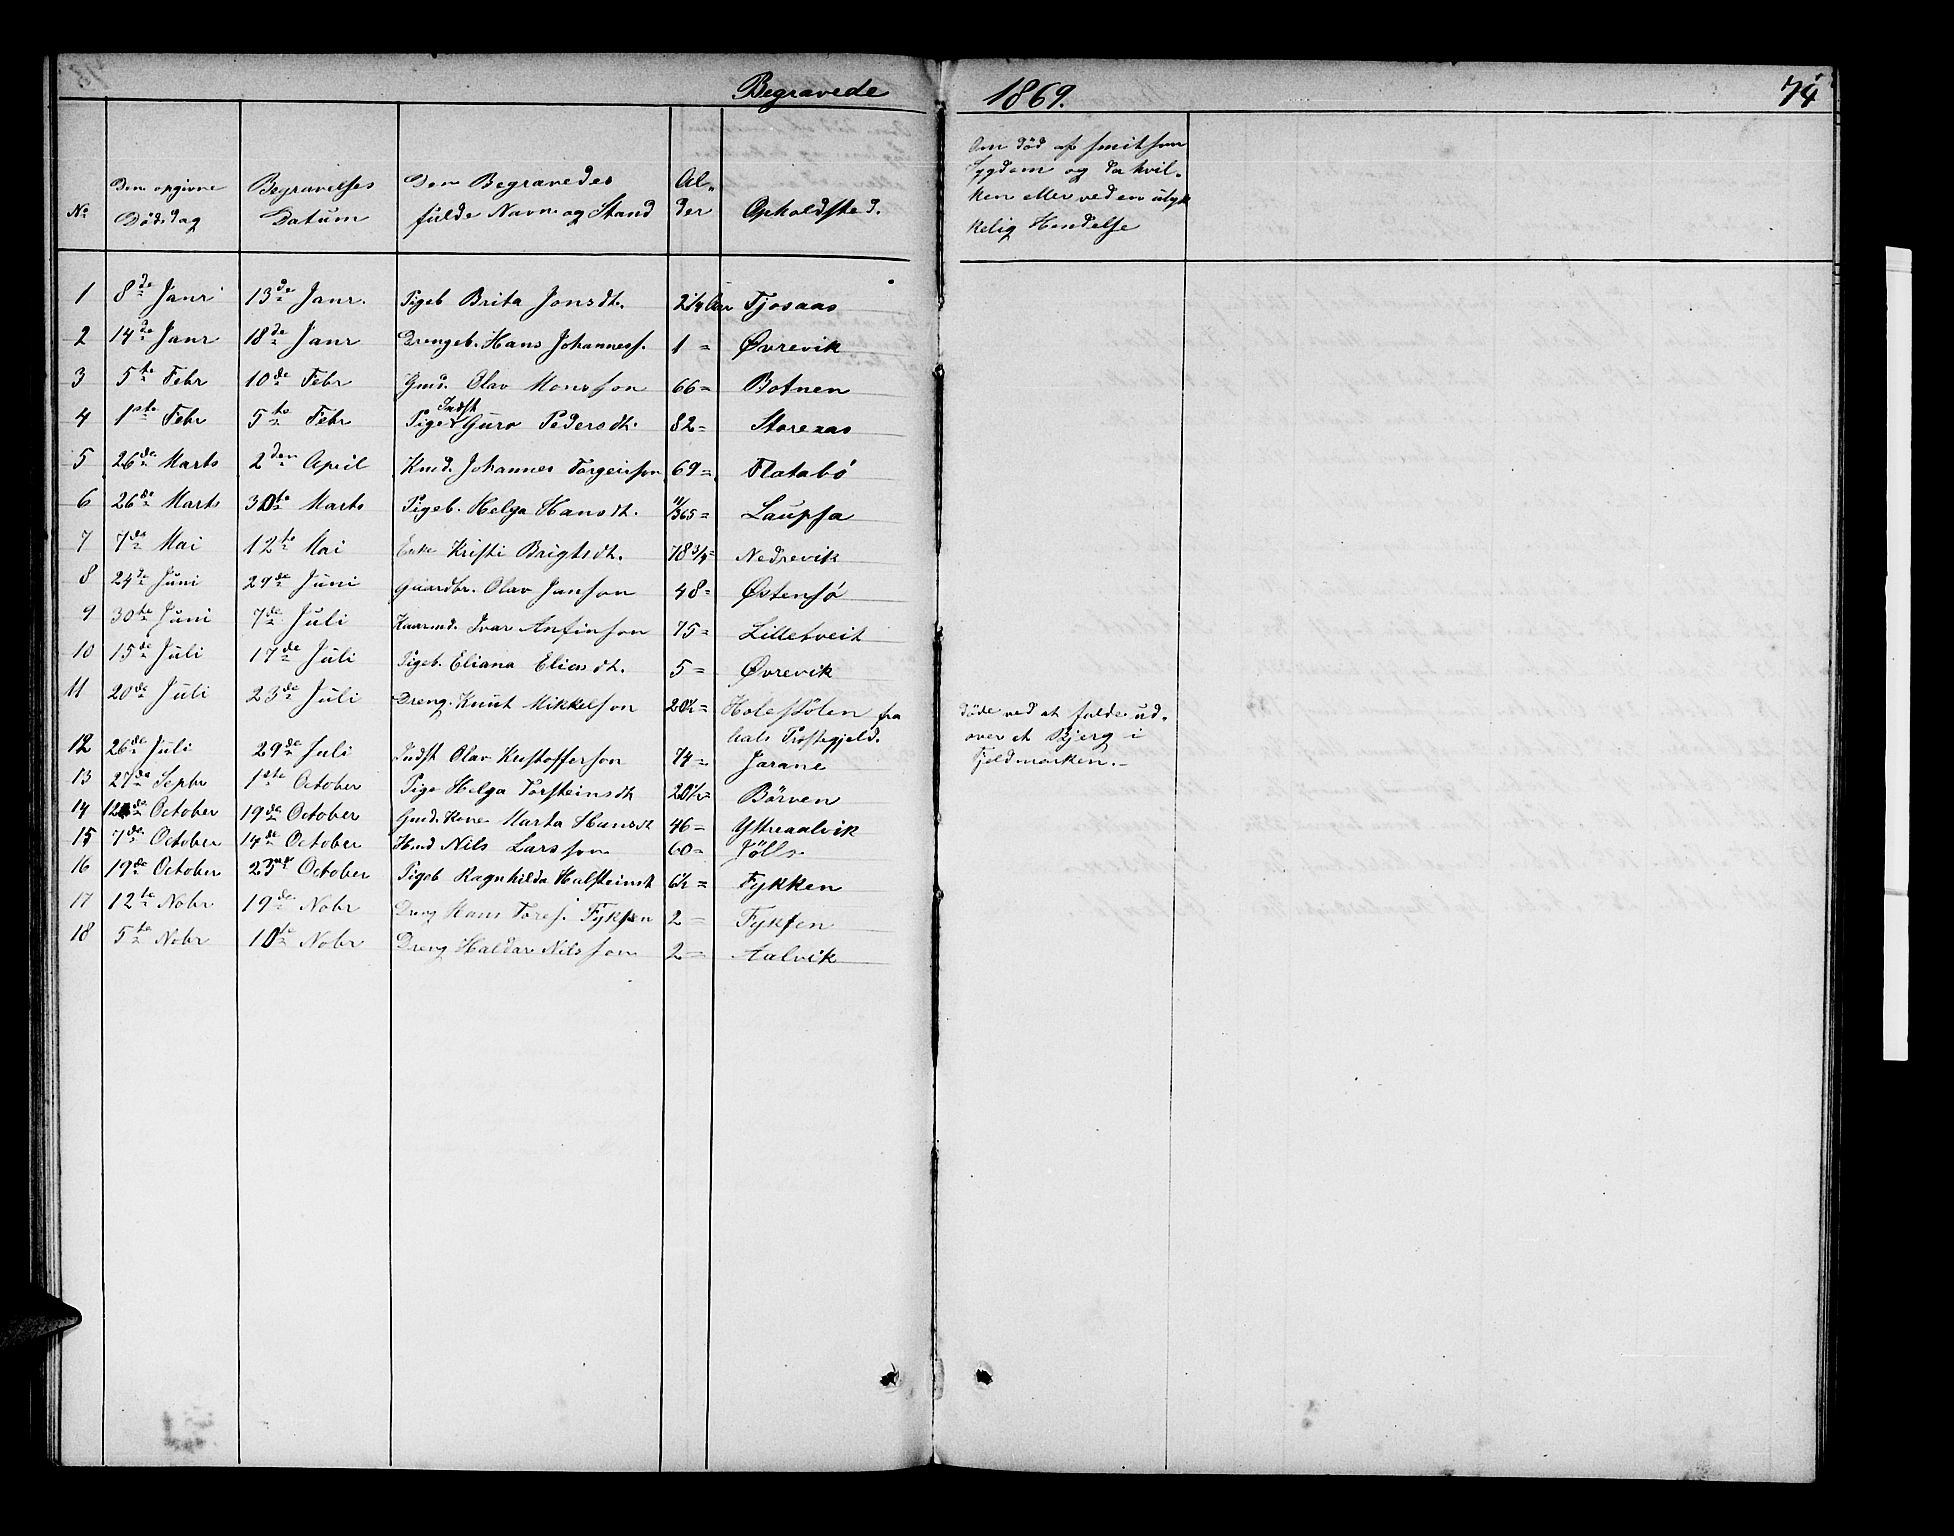 Begravede 1869. 74
No
Den opgivne Dödsdag
Begravelses Datum
Den Begravedes fulde Navn og Stand
Al- der
Opholdsted.
Om död af smitsom
Sygdom og da hvil-
ken eller ved en ulyk
kelig Hendelse
1 8de Janr 13de Janr. Pigeb Brita Jonsdt. 2 1/4 Aar Tjosaas
2 14de Janr 18de Janr Drengeb. Hans Johanness. 1 = Øvrevik
3 5te Febr 10de Febr Gmd. Olav Monsson 66 = Botnen
4 1ste Febr 5te Febr Pige Indst Guro Pedersdt. 82 = Storeaas
5 26de Marts 2den April Kmd. Johannes Torgeirson 69 = Flatabö
6 26de Marts 30te Marts Pigeb. Helga Hansdt. 11/365 = Laupsa
7 7de Mai 12te Mai Enke Kristi Brigtsdt. 78 3/4 = Nedrevik
8 24de Juni 29de Juni Gaardbr. Olav Janson 48 = Østensö
9 30te Juni 7de Juli Kaarmd. Ivar Anfinson 75 = Lilletveit
10 15de Juli 17de Juli Pigeb. Eliana Eliasdt. 5 = Øvrevik
11 20de Juli 23de Juli Dreng. Knut Mikkelson 20 1/2 = Holestölen fra
Præstegjeld. döde ved at falde ud-
over et Bjerg i
Fjeldmarken. -
12 26de Juli 29de Juli Indst Olav Kristofferson 74 = Jarane
13 27de Septbr 1ste October Pige Helga Torsteinsdt 20 1/2 = Börven
14 12de October 19de October Gmd. Kone Marta Hansdt 46 = Yttreaalvik
15 7de October 14de October Hmd Nils Larsson 60 =
16 19de October 23de October Pigeb Ragnhilda Halsteinsdt 6 1/2 = Fykken
17 12te Nobr 19de Nobr Dreng Hans Tores. Fyksen 2 = Fyksen
18 5te Nobr 10te Nobr Dreng Haldar Nilsson 2 = Aalvik